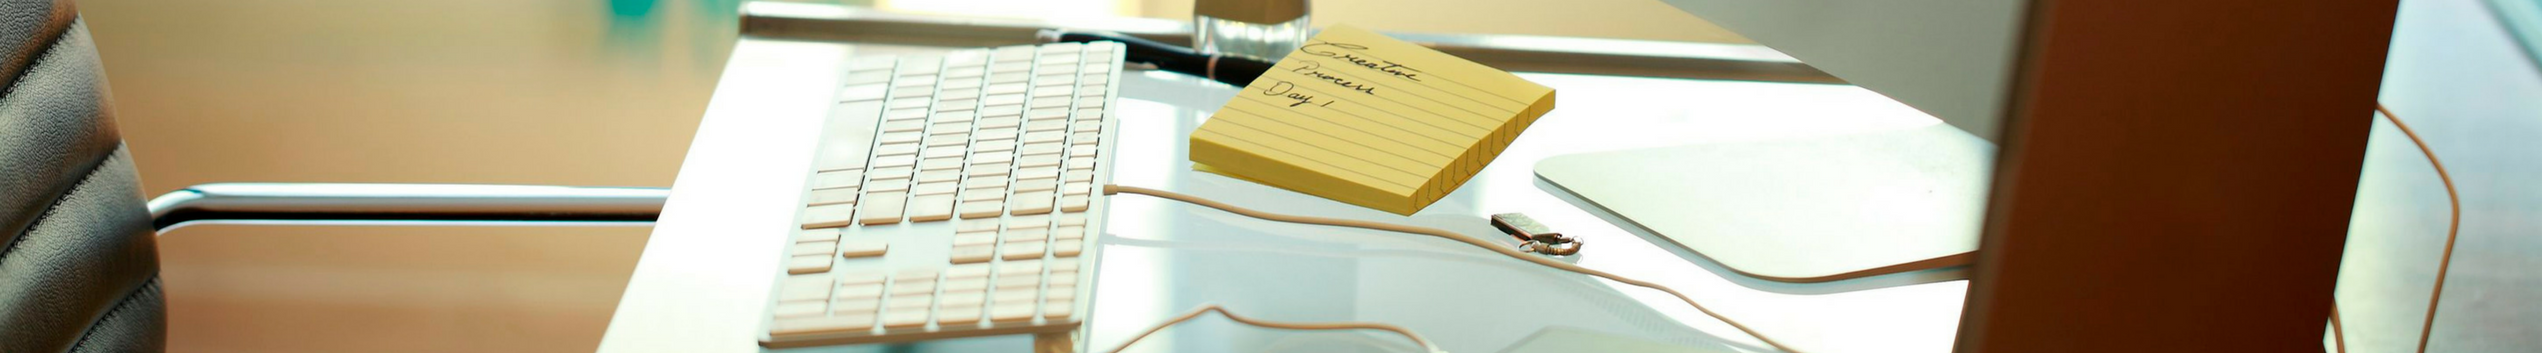 Creative
Process
Day 1